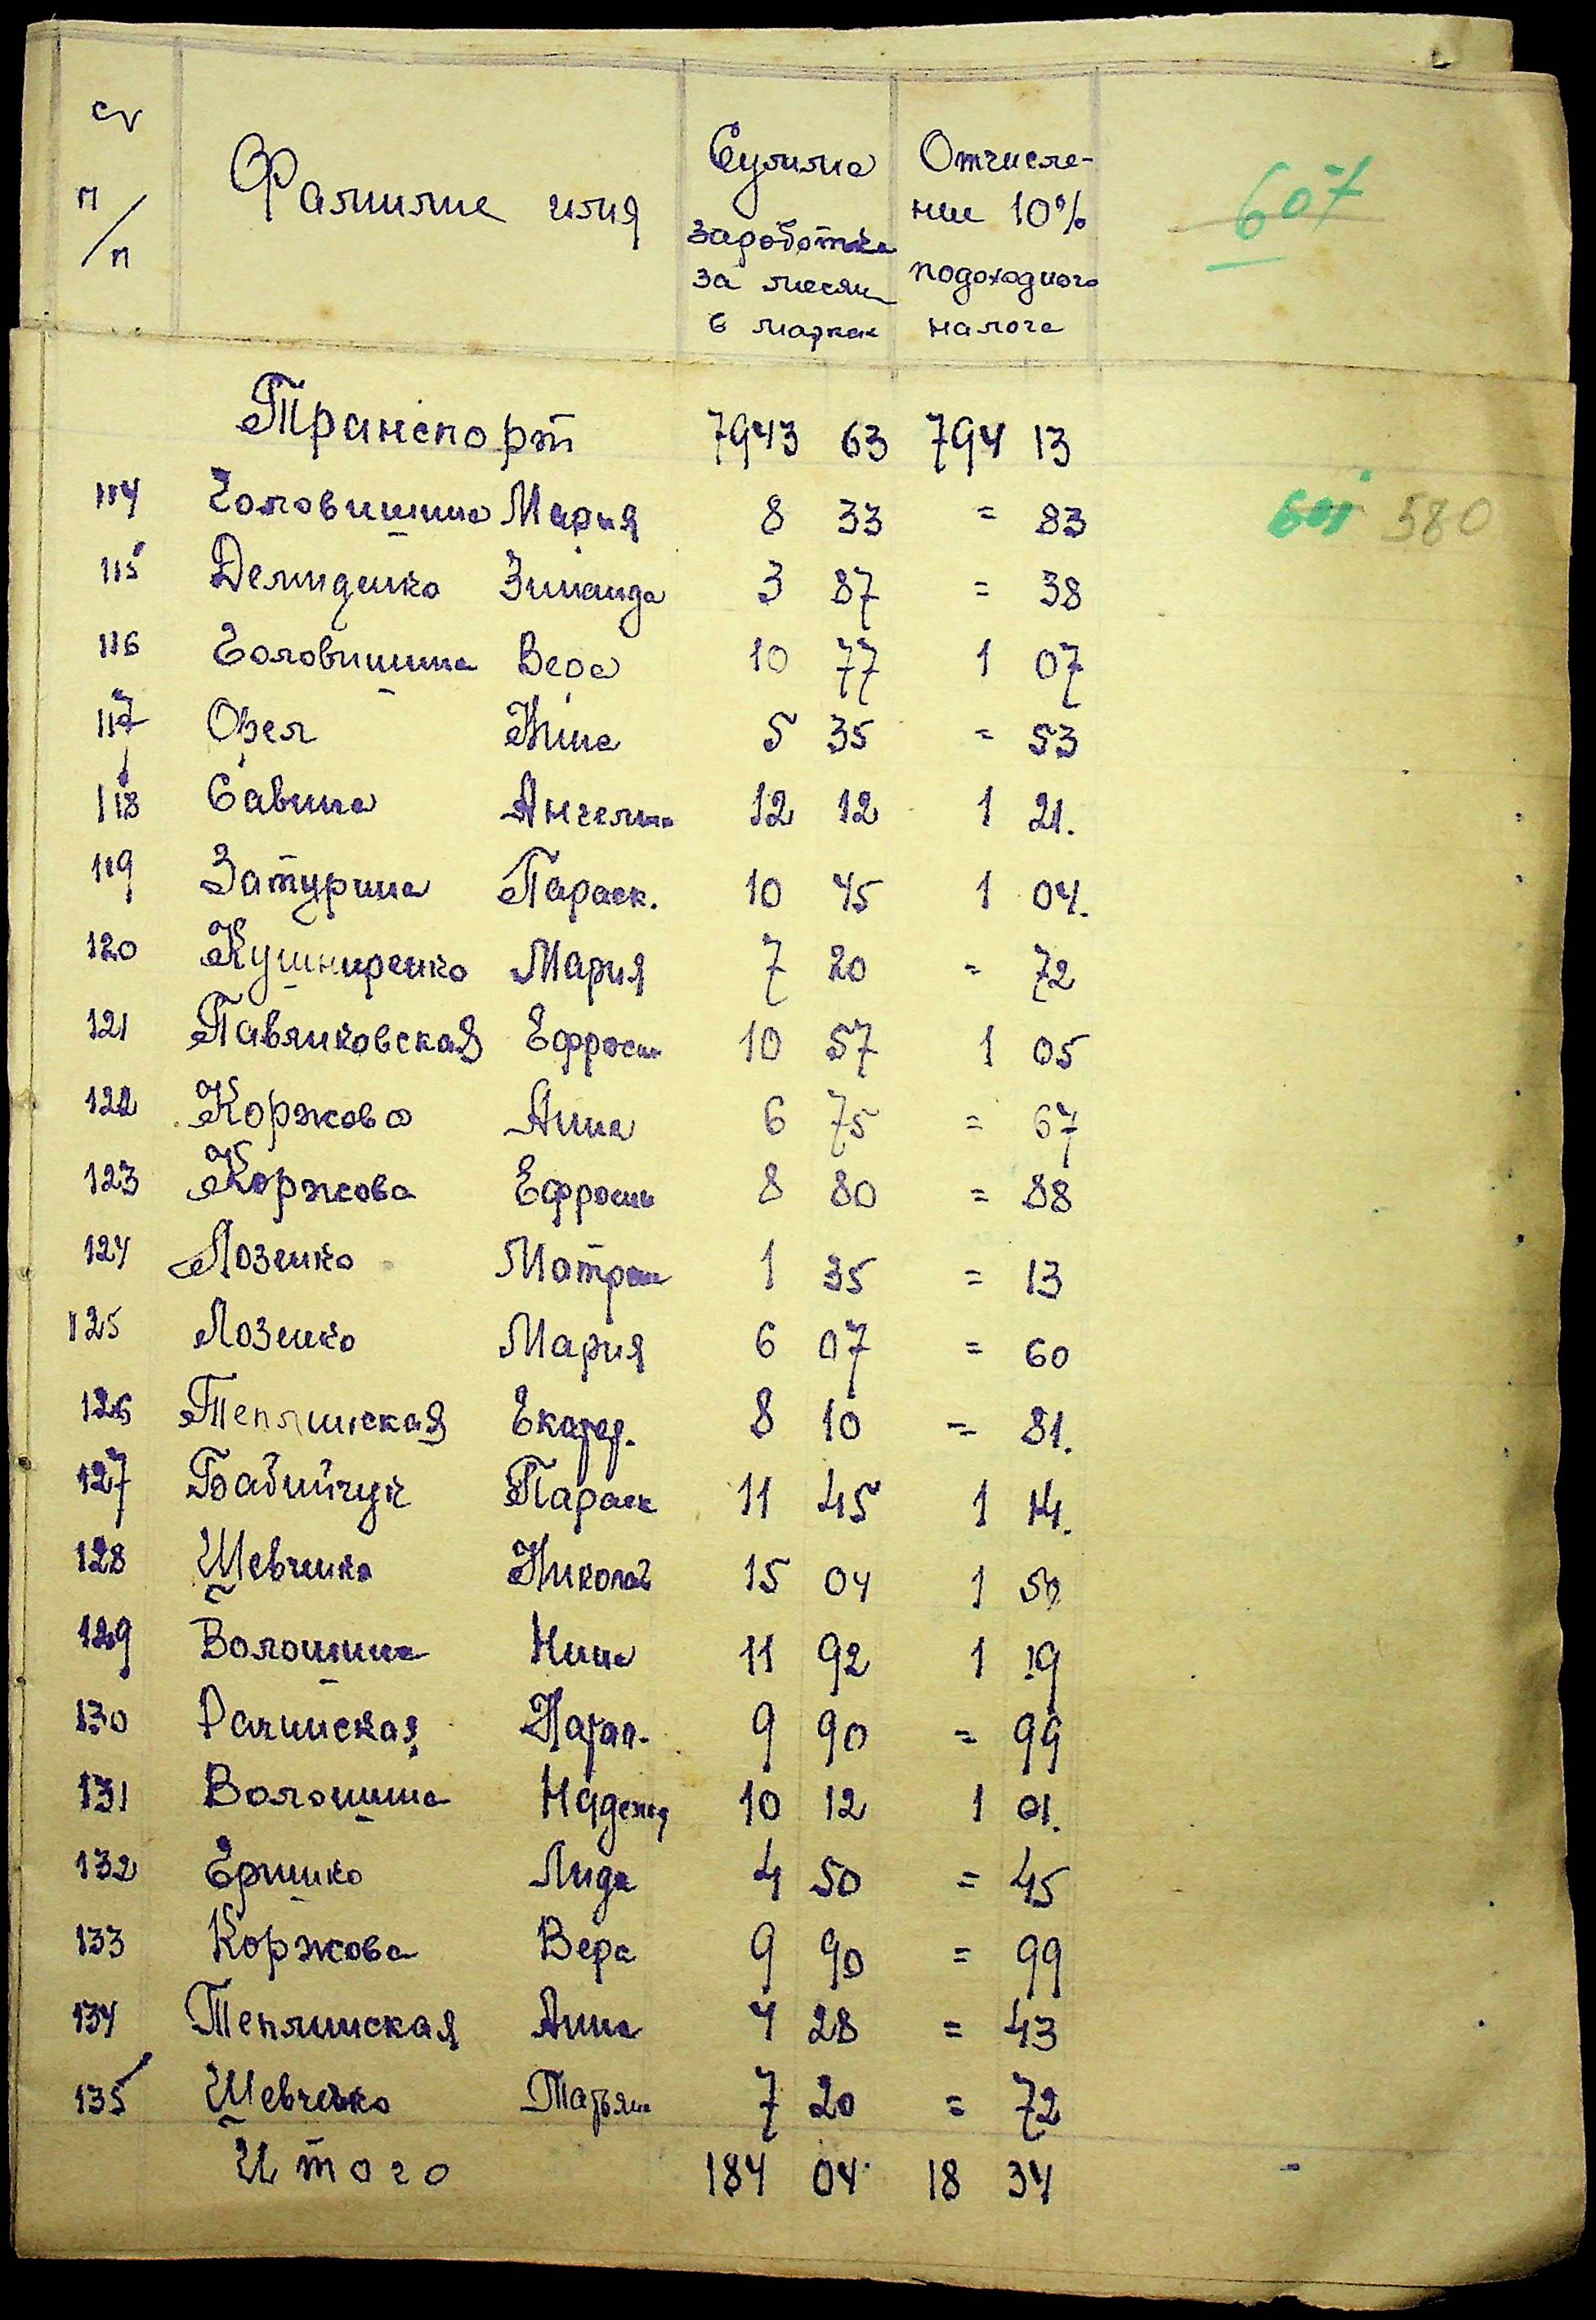 № п/п Фамилие имя Сумма заработка за месяц в марках Отчисление 10% подоходного налога
607
Транспорт 7943 63 794 13
114 Головишина Мария 8 33 = 83 580
115 Демиденко Зинаида 3 87 = 38
116 Головишина Вера 10 77 1 07
117 Орел Нина 5 35 = 53
118 Савина Ангелина 12 12 1 21.
119 Затурина Параск. 10 45 1 04.
120 Кушниренко Мария 7 20 = 72
121 Павянковская Ефросин 10 57 1 05
122 Коржова Анна 6 75 = 67
123 Коржова Ефросин 8 80 = 88
124 Лозенко Мотрона 1 35 = 13
125 Лозенко Мария 6 07 = 60
126 Теплинская Екатер. 8 10 = 81.
127 Бабийчук Параск 11 45 1 14.
128 Шевченко Николай 15 04 1 50
129 Волошина Нина 11 92 1 19
130 Рачинская Натал. 9 90 = 99
131 Волошина Надежд 10 12 1 01.
132 Ершенко Лида 4 50 = 45
133 Коржова Вера 9 90 = 99
134 Теплинская Анна 4 28 = 43
135 Шевченко Татьяна 7 20 = 72
Итого 184 04 18 34